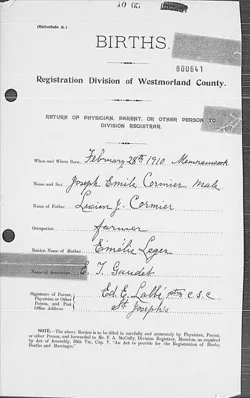 10 65
(Schedule A.)
BIRTHS.
800641
Registration Division of Westmorland County.
RETURN OF PHYSICIAN, PARENT, OR OTHER PERSON TO
DIVISION REGISTRAR.
When and Where Born, February 28th 1910. Memramcook
Name and Sex, Joseph Emile Cormier Male
Name of Father, Lucien J. Cormier
Occupation, farmer
Maiden Name of Mother, Emélie Leger
Name of Accoucheur, E. T. Gaudet
Signature of Parent,
Physician or Other
Person, and Post
Office Address,
Ed. E. Labbé C.S.C
St Joseph
NOTE.—The above Return is to be filled in carefully and accurately by Physician, Parent,
or other Person, and forwarded to Mr. P. A. McCully, Division Registrar, Moncton, as required
by Act of Assembly, 50th Vic., Cap. V. "An Act to provide for the Registration of Births,
Deaths and Marriages."